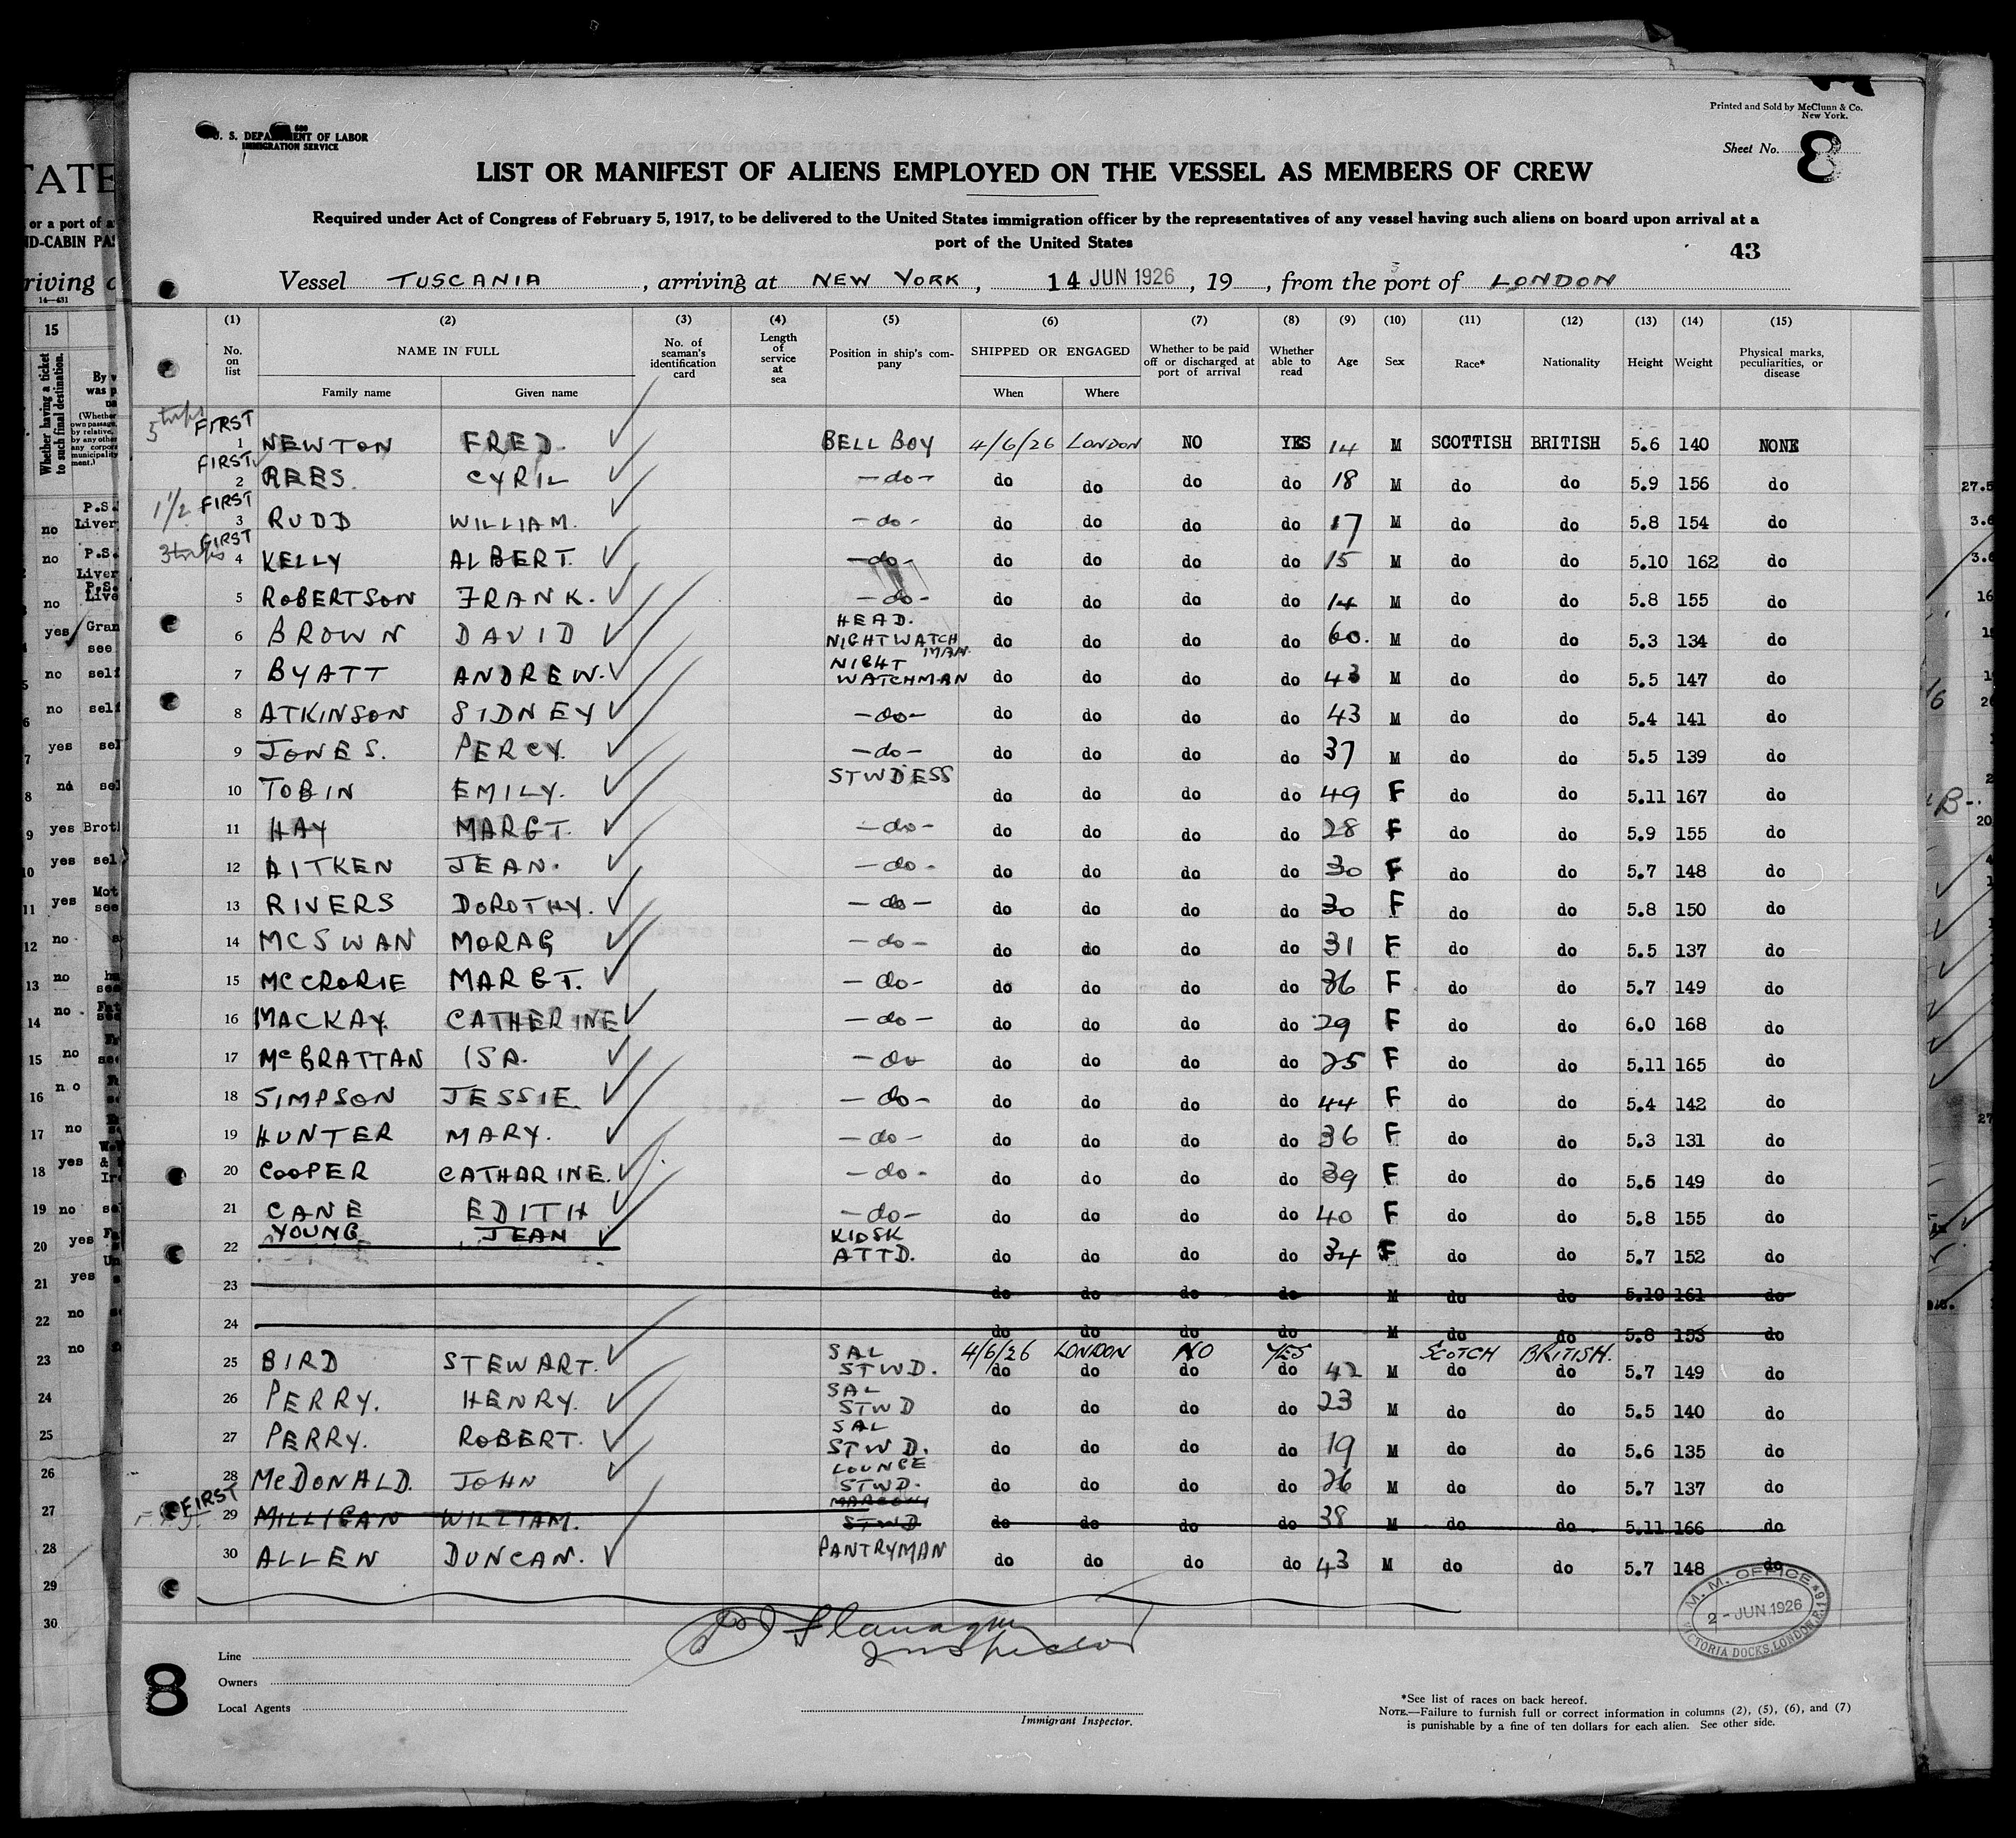 U. S. DEPARTMENT OF LABOR
IMMIGRATION SERVICE
Printed and Sold by McClunn & Co.
New York.
Sheet No. 8
LIST OR MANIFEST OF ALIENS EMPLOYED ON THE VESSEL AS MEMBERS OF CREW
Required under Act of Congress of February 5, 1917, to be delivered to the United States immigration officer by the representatives of any vessel having such aliens on board upon arrival at a
port of the United States
43
Vessel TUSCANIA, arriving at NEW YORK, 14 JUN 1926, 19 , from the port of LONDON
(1) No. on list (2) NAME IN FULL Family name Given name (3) No. of seaman's identification card (4) Length of service at sea (5) Position in ship's company (6) SHIPPED OR ENGAGED When Where (7) Whether to be paid off or discharged at port of arrival (8) Whether able to read (9) Age (10) Sex (11) Race* (12) Nationality (13) Height (14) Weight (15) Physical marks, peculiarities, or disease
5 trips FIRST 1 NEWTON FRED. BELL BOY 4/6/26 LONDON NO YES 14 M SCOTTISH BRITISH 5.6 140 NONE
FIRST 2 REES. CYRIL -do- do do do do 18 M do do 5.9 156 do
1 1/2 FIRST 3 RUDD WILLIAM. -do- do do do do 17 M do do 5.8 154 do
3 trips FIRST 4 KELLY ALBERT. -do- do do do do 15 M do do 5.10 162 do
5 ROBERTSON FRANK. -do- do do do do 14 M do do 5.8 155 do
6 BROWN DAVID HEAD. NIGHTWATCHMAN do do do do 60. M do do 5.3 134 do
7 BYATT ANDREW. NIGHT WATCHMAN do do do do 43 M do do 5.5 147 do
8 ATKINSON SIDNEY -do- do do do do 43 M do do 5.4 141 do
9 JONES. PERCY. -do- do do do do 37 M do do 5.5 139 do
10 TOBIN EMILY. STWDESS do do do do 49 F do do 5.11 167 do
11 HAY MARGT. -do- do do do do 28 F do do 5.9 155 do
12 AITKEN JEAN. -do- do do do do 30 F do do 5.7 148 do
13 RIVERS DOROTHY. -do- do do do do 30 F do do 5.8 150 do
14 MCSWAN MORAG -do- do do do do 31 F do do 5.5 137 do
15 MCCRORIE MARGT. -do- do do do do 36 F do do 5.7 149 do
16 MACKAY. CATHERINE -do- do do do do 29 F do do 6.0 168 do
17 McBRATTAN ISA. -do do do do do 25 F do do 5.11 165 do
18 SIMPSON JESSIE. -do- do do do do 44 F do do 5.4 142 do
19 HUNTER MARY. -do- do do do do 36 F do do 5.3 131 do
20 COOPER CATHARINE. -do- do do do do 39 F do do 5.5 149 do
21 CANE EDITH -do- do do do do 40 F do do 5.8 155 do
22 YOUNG JEAN KIOSK ATTD. do do do do 34 F do do 5.7 152 do
23 do do do do M do do 5.10 161 do
24 do do do do M do do 5.8 153 do
4/6/26 LONDON NO YES SCOTCH BRITISH.
25 BIRD STEWART. SAL STWD. do do do do 42 M do do 5.7 149 do
26 PERRY. HENRY. SAL STWD do do do do 23 M do do 5.5 140 do
27 PERRY. ROBERT. SAL STWD. do do do do 19 M do do 5.6 135 do
28 McDONALD. JOHN LOUNGE STWD. do do do do 26 M do do 5.7 137 do
FIRST 29 MILLIGAN WILLIAM. MARCONI STWD do do do do 38 M do do 5.11 166 do
30 ALLEN DUNCAN. PANTRYMAN do do do do 43 M do do 5.7 148 do
Flanagan
Inspector
M. M. OFFICE
2 - JUN 1926
VICTORIA DOCKS, LONDON, E.16
8
Line
Owners
Local Agents
Immigrant Inspector.
*See list of races on back hereof.
NOTE.—Failure to furnish full or correct information in columns (2), (5), (6), and (7)
is punishable by a fine of ten dollars for each alien. See other side.